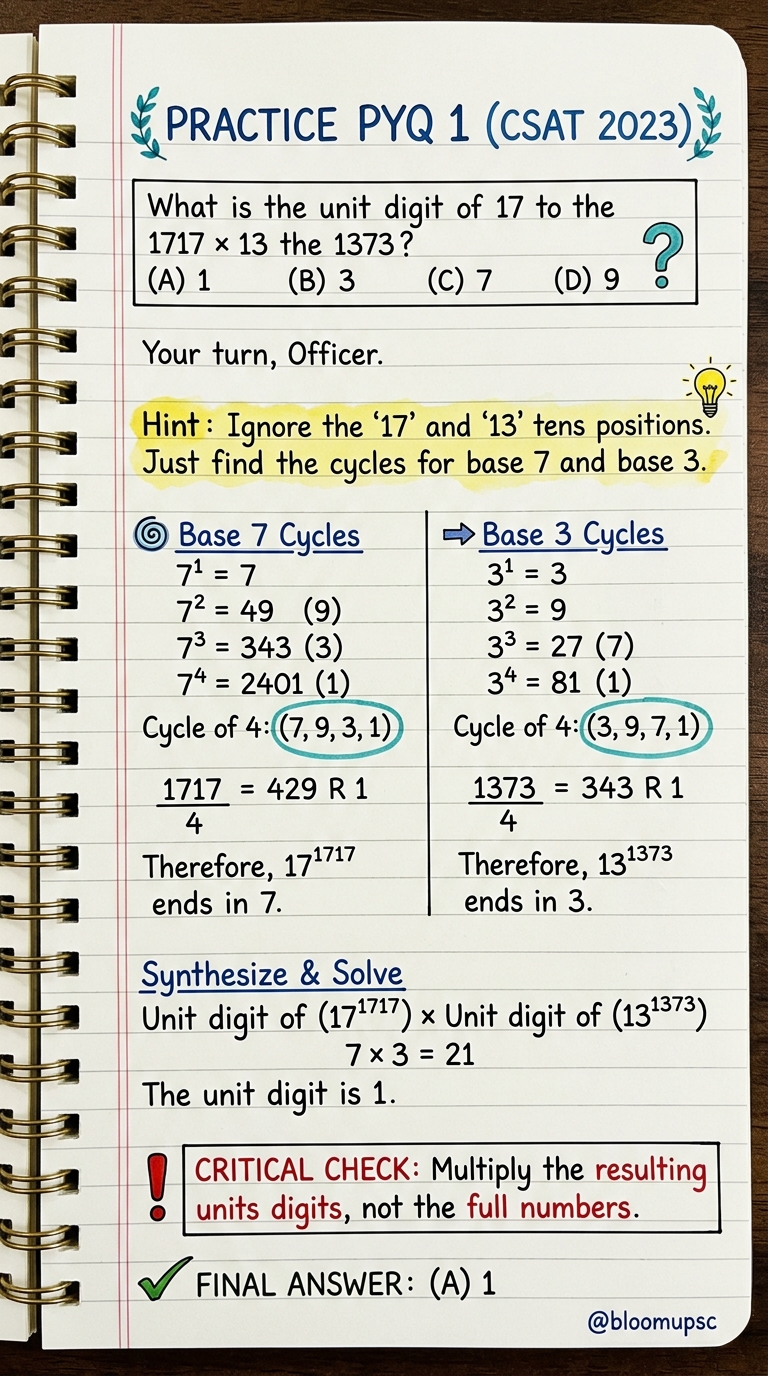 PRACTICE PYQ 1 (CSAT 2023)
What is the unit digit of 17 to the
1717 × 13 the 1373?
(A) 1 (B) 3 (C) 7 (D) 9
?
Your turn, Officer.
Hint: Ignore the ‘17’ and ‘13’ tens positions.
Just find the cycles for base 7 and base 3.
Base 7 Cycles
7¹ = 7
7² = 49 (9)
7³ = 343 (3)
7⁴ = 2401 (1)
Cycle of 4: (7, 9, 3, 1)
1717/4 = 429 R 1
Therefore, 17¹⁷¹⁷
ends in 7.
Base 3 Cycles
3¹ = 3
3² = 9
3³ = 27 (7)
3⁴ = 81 (1)
Cycle of 4: (3, 9, 7, 1)
1373/4 = 343 R 1
Therefore, 13¹³⁷³
ends in 3.
Synthesize & Solve
Unit digit of (17¹⁷¹⁷) × Unit digit of (13¹³⁷³)
7 × 3 = 21
The unit digit is 1.
! CRITICAL CHECK: Multiply the resulting
units digits, not the full numbers.
✓ FINAL ANSWER: (A) 1
@bloomupsc